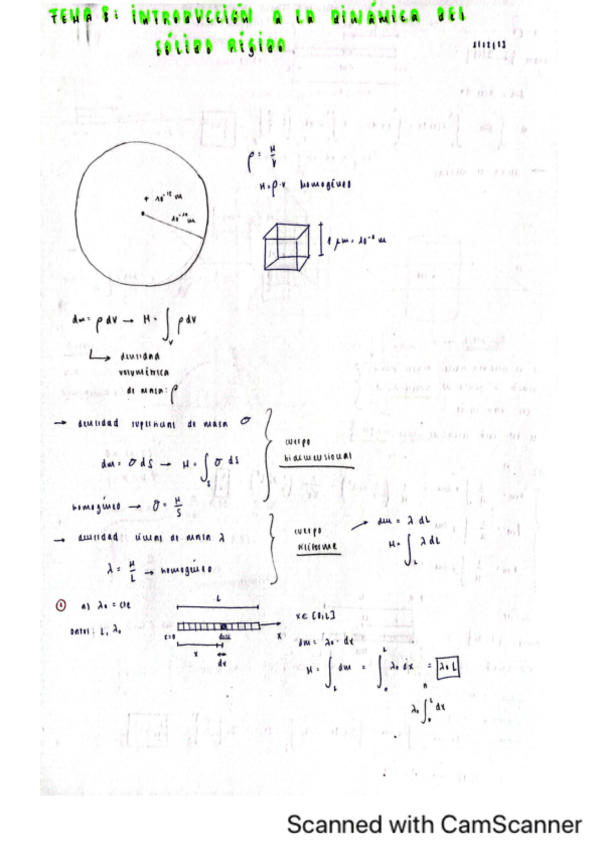 TEMA 8: INTRODUCCIÓN A LA DINÁMICA DEL
SÓLIDO RÍGIDO.
10⁻¹⁵ m
10⁻¹⁰ m
ρ = M/V
M = ρ·V homogéneo
1 μm = 10⁻⁶ m
dm = ρ dV → M = ∫_V ρ dV
↳ densidad
volumétrica
de masa: ρ
→ densidad superficial de masa σ
dm = σ dS → M = ∫_S σ dS
homogéneo → σ = M/S
cuerpo
bidimensional
→ densidad lineal de masa λ
λ = M/L → homogéneo
cuerpo
filiforme
dm = λ dL
M = ∫_L λ dL
① a) λ₀ = cte
Datos: L, λ₀
L
x=0
dm
x
x
dx
x ∈ [0,L]
dm = λ₀ · dx
M = ∫_L dm = ∫₀ᴸ λ₀ dx = λ₀ L
λ₀ ∫₀ᴸ dx
Scanned with CamScanner